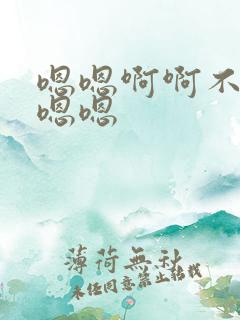 嗯嗯啊啊不
嗯嗯
薄荷無秋
未经同意禁止转载